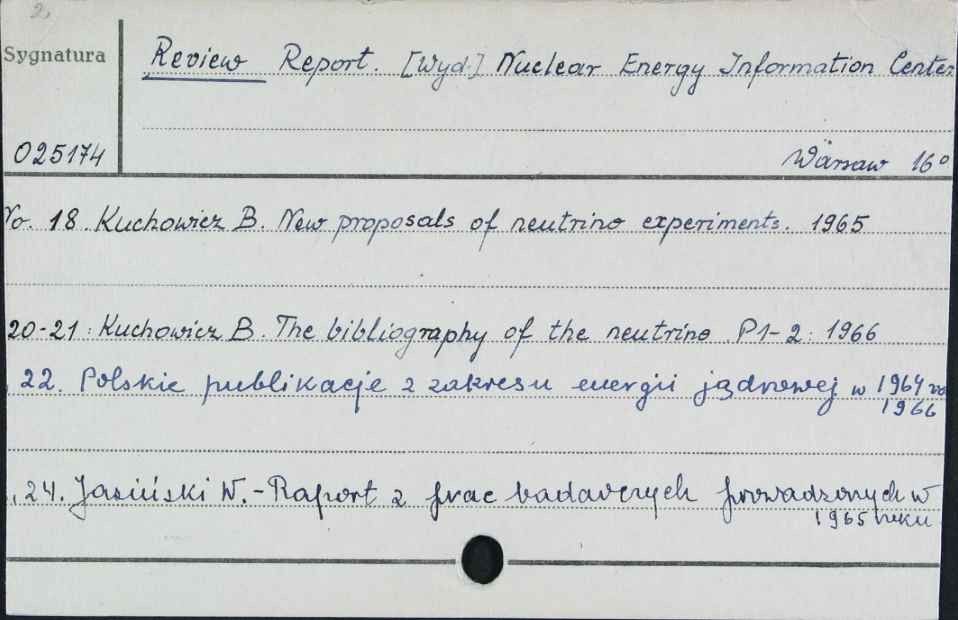 2,
Sygnatura
Review Report. [Wyd.] Nuclear Energy Information Center
025174
Warsaw 16°
No. 18. Kuchowicz B. New proposals of neutrino experiments. 1965
20-21: Kuchowicz B. The bibliography of the neutrino. P1-2: 1966
22. Polskie publikacje z zakresu energii jądrowej w 1964 ro
1966
24. Jasiński W. - Raport z prac badawczych prowadzonych w
1965 roku.